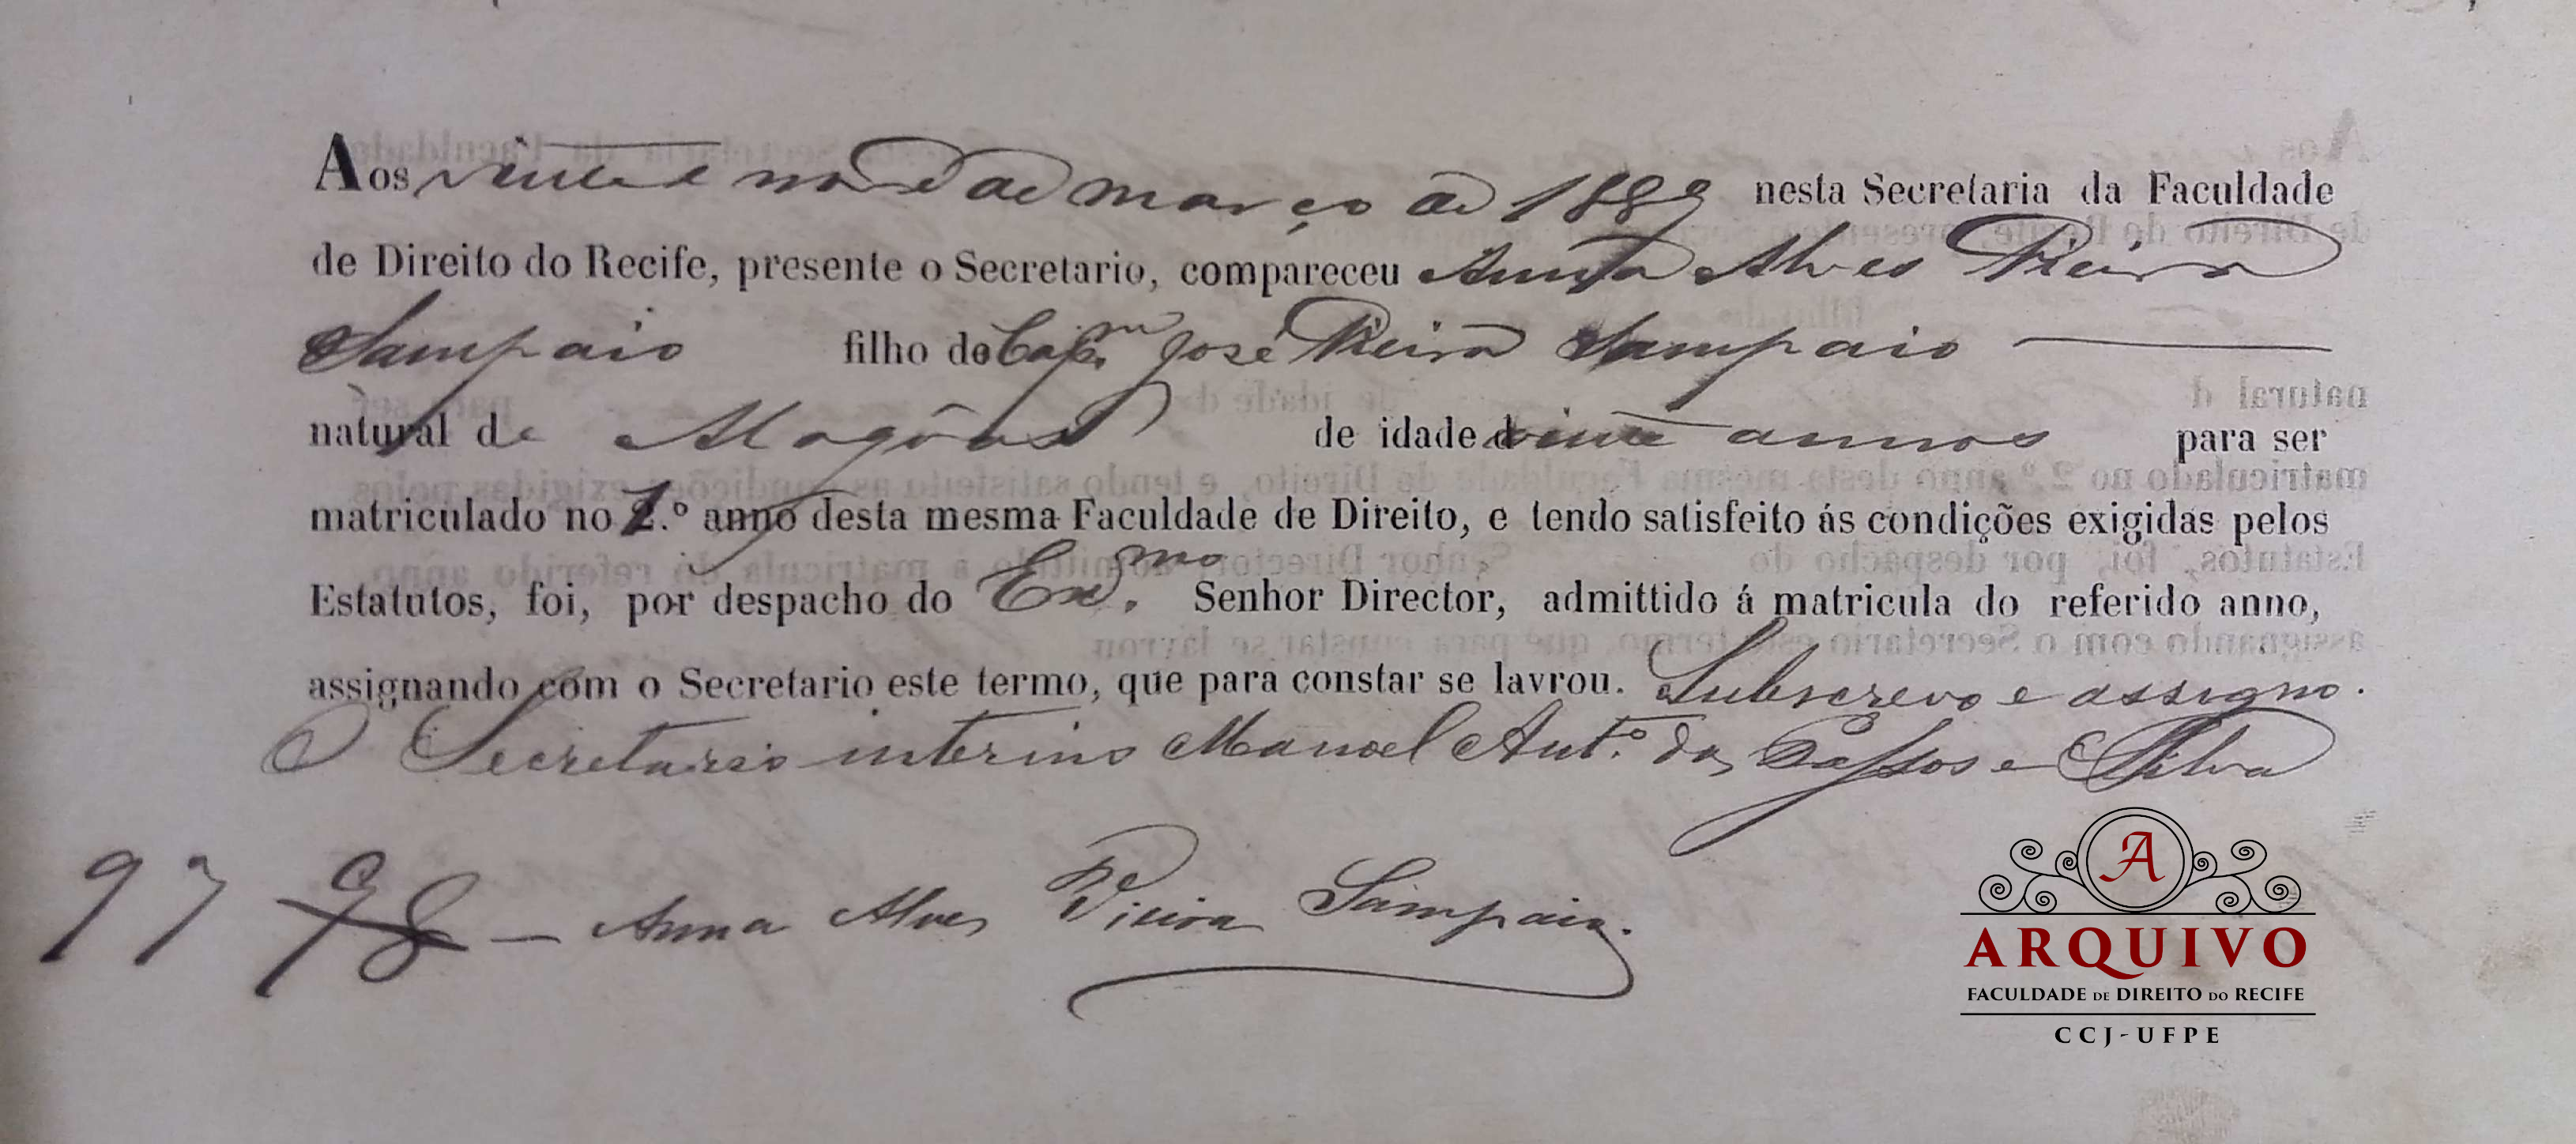 Aos vinte e nove de março de 1889 nesta Secretaria da Faculdade
de Direito do Recife, presente o Secretario, compareceu Anna Alves Vieira
Sampaio filho do Cap.m José Vieira Sampaio
natural de Alagôas de idade vinte annos para ser
matriculado no 1.º anno desta mesma Faculdade de Direito, e tendo satisfeito ás condições exigidas pelos
Estatutos, foi, por despacho do Ex.mo Senhor Director, admittido á matricula do referido anno,
assignando com o Secretario este termo, que para constar se lavrou. Subscrevo e assigno.
O Secretario interino Manoel Ant.º dos Passos e Silva
97 98 — Anna Alves Vieira Sampaio.
A
ARQUIVO
FACULDADE DE DIREITO DO RECIFE
CCJ-UFPE